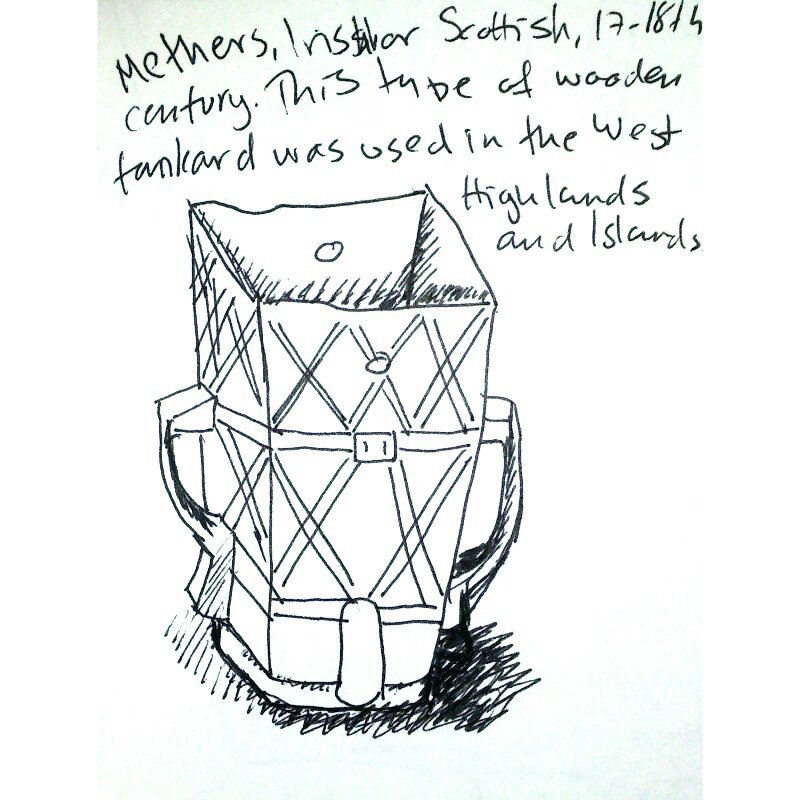 Methers, Irish or Scottish, 17-18th
century. This type of wooden
tankard was used in the West
Highlands
and Islands